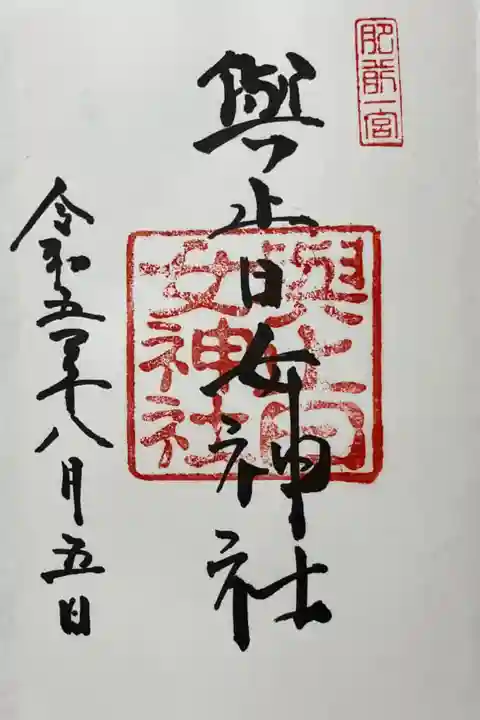 肥前一宮
與止日女神社
與止日女神社
令和五年八月五日